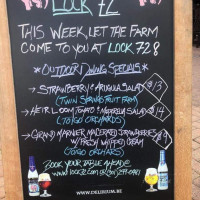 LOCK 72
THIS WEEK, LET THE FARM
COME TO YOU AT LOCK 72 &
*OUTDOOR DINING SPECIALS*
→ STRAWBERRY & ARUGULA SALAD $13
(TWIN SPRINGS FRUIT FARM)
→ HEIRLOOM TOMATO & MOZZARELLA SALAD $14
(TOIGO ORCHARDS)
→ GRAND MARNIER MACERATED STRAWBERRIES
W/ FRESH WHIPPED CREAM
(TOIGO ORCHARDS)
BOOK YOUR TABLE AHEAD @
WWW.DELIRIUM.BE